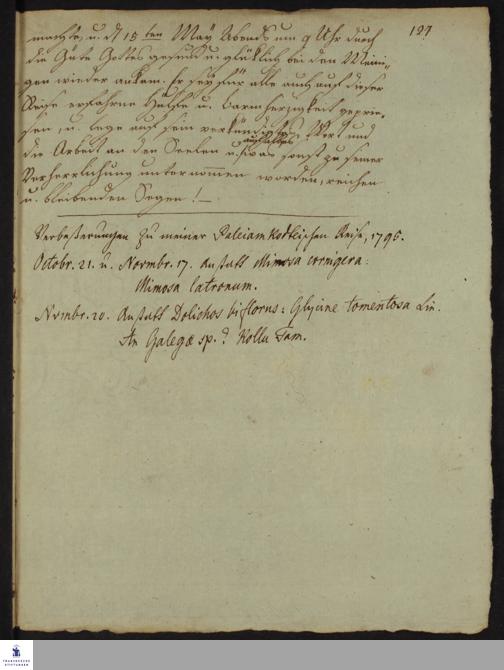 127
machte, u. d 15ten May Abends um 9 Uhr durch
die Güte Gottes gesund u. glücklich bei den Meini-
gen wieder ankam. Er sey für alle auch auf dieser
Reise erfahrne Hülfe u. Barmherzigkeit geprie-
sen, u. lege auf sein verkündigtes Wort und
die Arbeit an den Seelen u. was sonst zu seiner
Verherrlichung unternommen worden, reichen
u. bleibenden Segen! —
Verbeßerungen zu meiner Paleiamkotteischen Reise, 1795.
Octobr. 21. u. Novmbr. 17. Anstatt Mimosa cornigera:
Mimosa latronum.
Nvmbr. 20. Anstatt Dolichos biflorus: Glycine tomentosa Lin.
An Galegæ sp.? Kollu Tam.
FRANCKESCHE
STIFTUNGEN